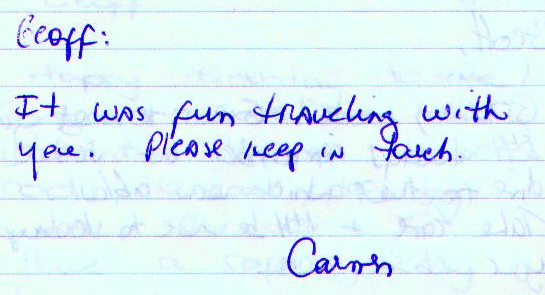 Geoff:
It was fun traveling with
you. Please keep in touch.
Carmen